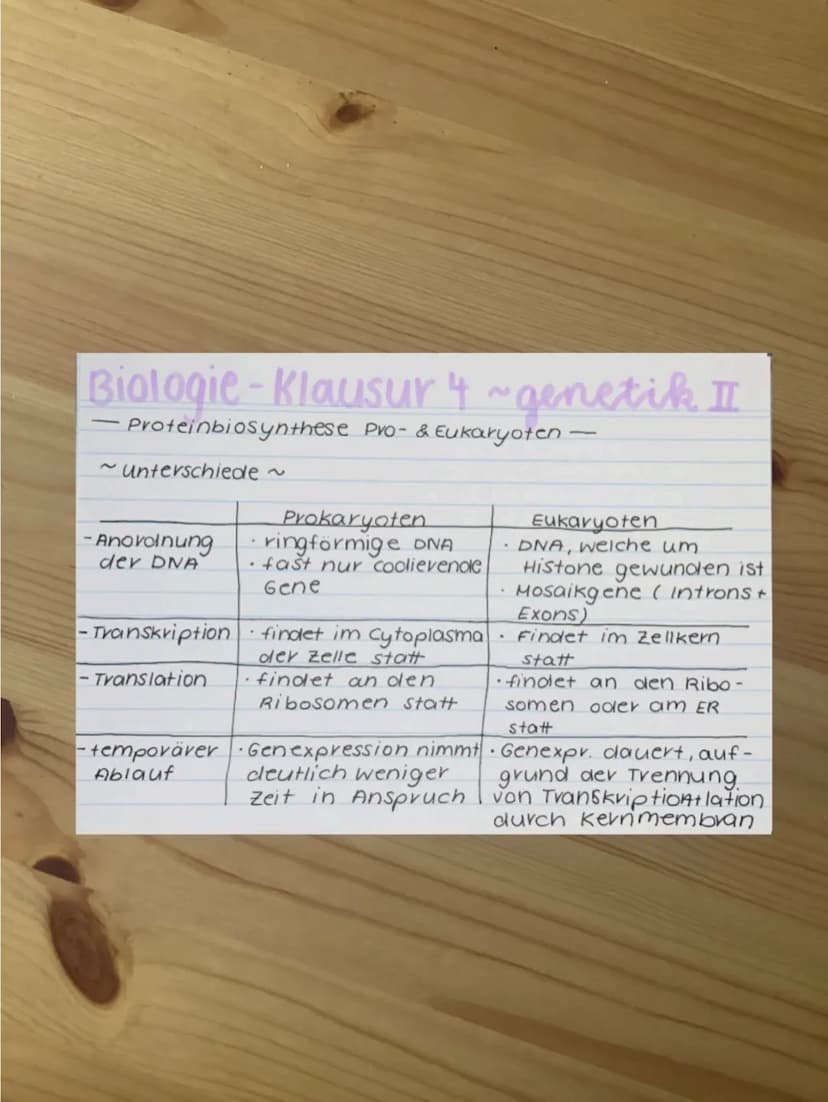 Biologie - Klausur 4 ~ genetik II
— Proteinbiosynthese Pro- & Eukaryoten —
~ unterschiede ~
Prokaryoten
Eukaryoten
- Anordnung
der DNA
· ringförmige DNA
· fast nur codierende
Gene
· DNA, welche um
Histone gewunden ist
· Mosaikgene (Introns +
Exons)
- Transkription
· findet im Cytoplasma
der Zelle statt
· Findet im Zellkern
statt
- Translation
· findet an den
Ribosomen statt
· findet an den Ribo-
somen oder am ER
statt
- temporärer
Ablauf
· Genexpression nimmt
deutlich weniger
Zeit in Anspruch
· Genexpr. dauert, auf-
grund der Trennung
von Transkription+lation
durch Kernmembran